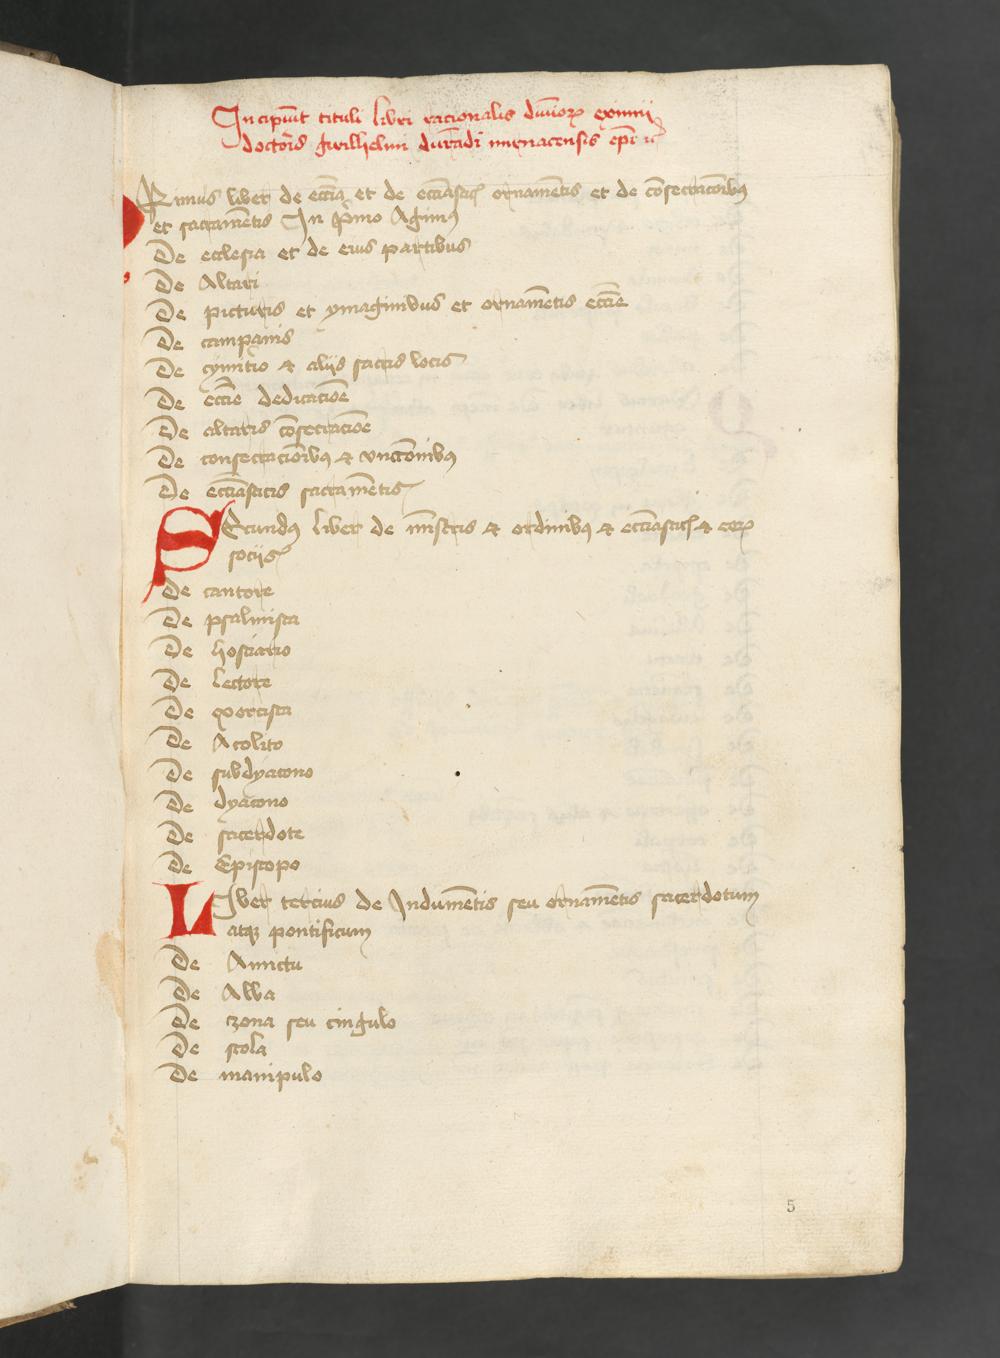 Incipiūt tituli libri racionalis diuinoꝝ eximii
doctoris gwilhelmi durādi mimacensis epi ic̄
Rimus liber de eccīa et de eccīasticꝭ ornamētis et de cōsecracōibꝰ
et sacramētis In p̄mo Agimꝰ
De ecclesia et de eius partibus
De Altari
De picturis et ymaginibus et ornamētis eccīe
De campanis
De cymit̄io ⁊ aliis sacris locis
De eccīe dedicacōe
De altaris cōsecracōe
De consecracōibꝰ ⁊ vnccōnibꝰ
De eccīasticis sacramētis
SEcundꝰ liber de mīstris ⁊ ordinibꝰ ⁊ eccīasticꝭ ⁊ eoꝝ
officiis
De cantore
De psalmista
De hostiario
De lectore
De exorcista
De Acolito
De subdyacono
De dyacono
De sacerdote
De Episcopo
LIber tercius de Indumētis seu ornamētis sacerdotum
atqꝫ pontificum
De Amictu
De Alba
De czona seu cingulo
De stola
De manipulo
5